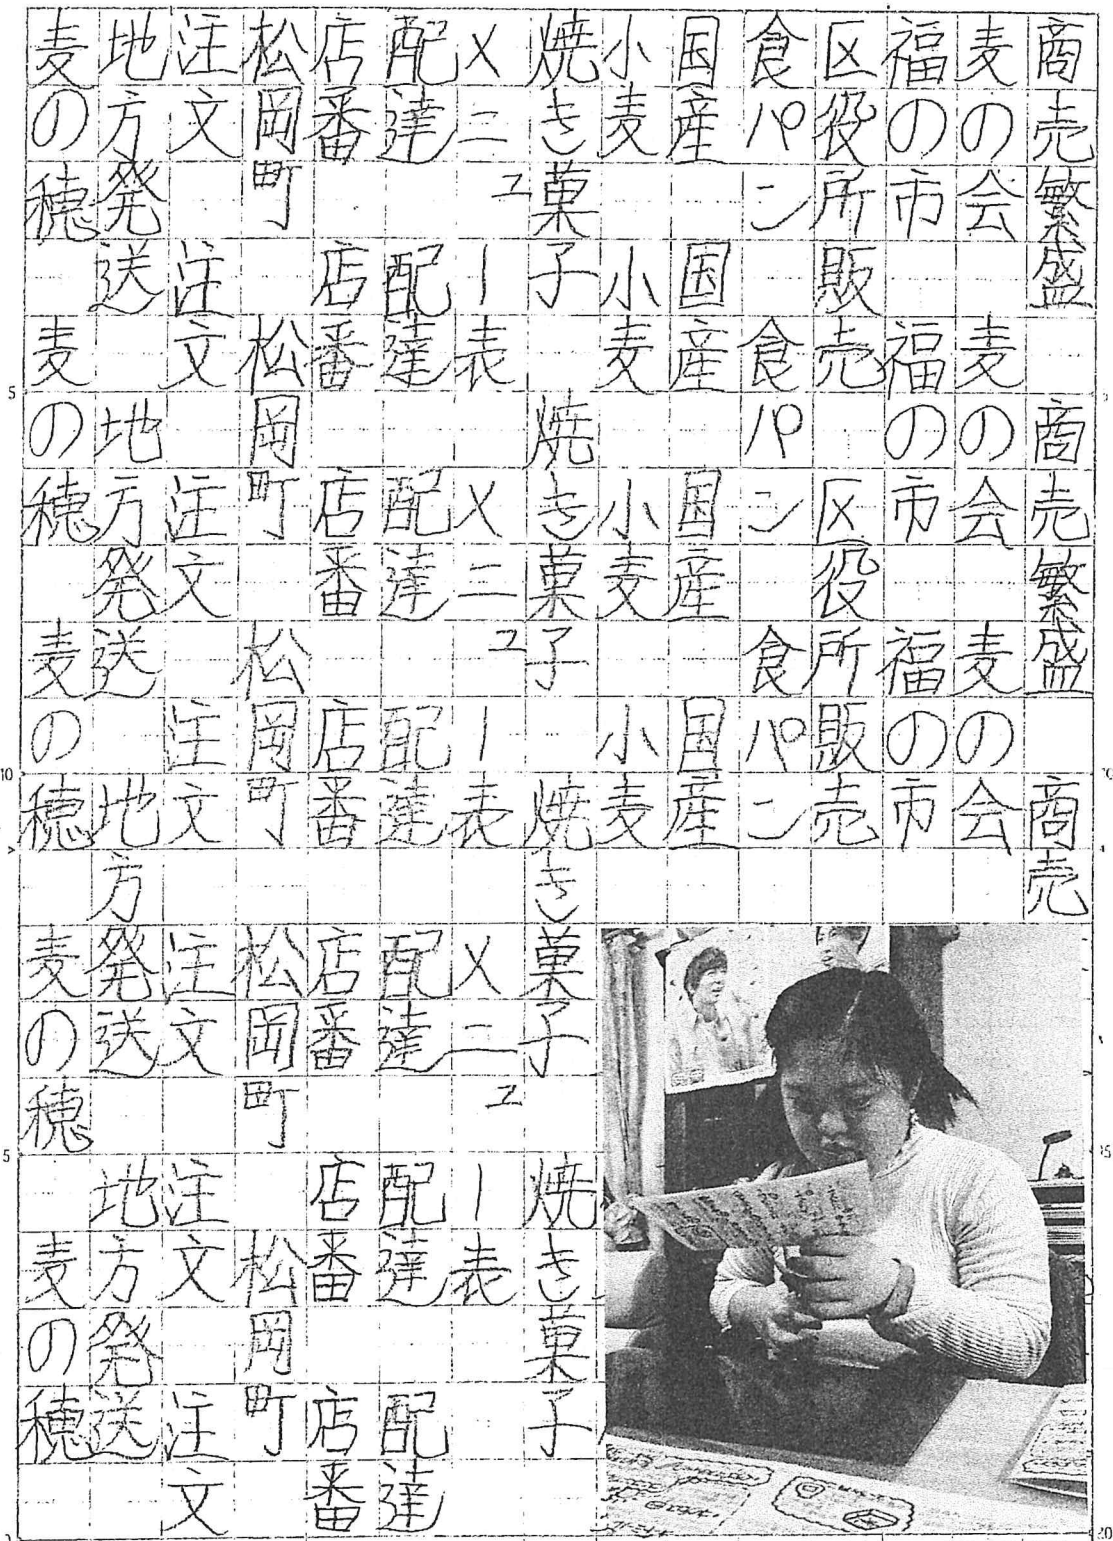 商売繁盛 商売繁盛 商売
麦の会 麦の会 麦の会
福の市 福の市 福の市
区役所販売 区役所販売
食パン 食パン 食パン
国産 国産 国産 国産
小麦 小麦 小麦 小麦
焼き菓子 焼き菓子 焼き菓子 焼き菓子
メニュー表 メニュー表 メニュー表
配達 配達 配達 配達 配達 配達 配達
店番 店番 店番 店番 店番 店番 店番
松岡町 松岡町 松岡町 松岡町 松岡町
注文 注文 注文 注文 注文 注文 注文
地方発送 地方発送 地方発送 地方発送
麦の穂 麦の穂 麦の穂 麦の穂 麦の穂